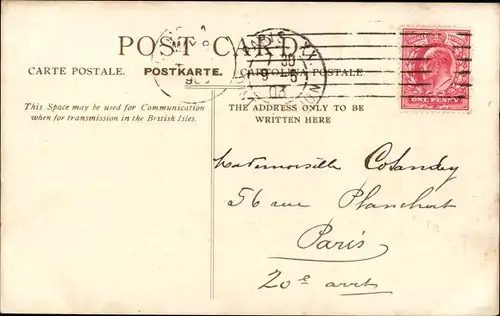 POST CARD
CARTE POSTALE. POSTKARTE. CARTOLINA POSTALE.
This Space may be used for Communication
when for transmission in the British Isles.
THE ADDRESS ONLY TO BE
WRITTEN HERE
PARIS
7 30
9 - 5
03
ONE PENNY
Mademoiselle Colandey
56 rue Planchat
Paris
20e arrt